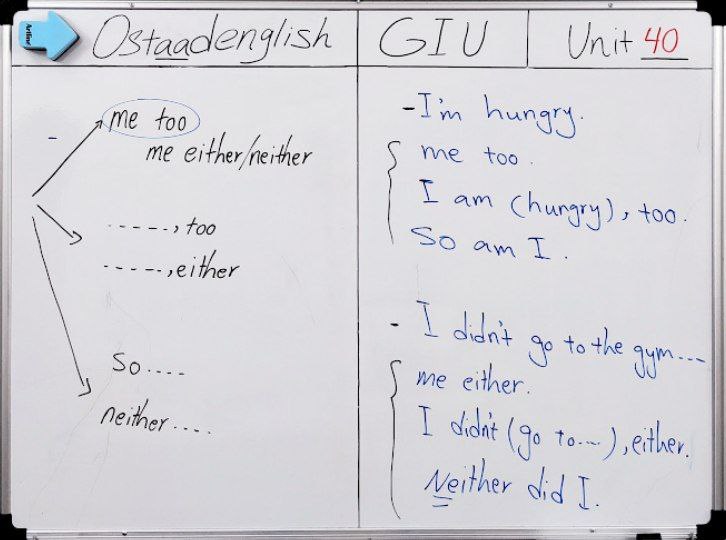 Ostaadenglish
GIU
Unit 40
me too
me either/neither
-----, too
-----, either
so....
neither....
- I'm hungry.
me too.
I am (hungry), too.
So am I.
- I didn't go to the gym...
me either.
I didn't (go to....), either.
Neither did I.